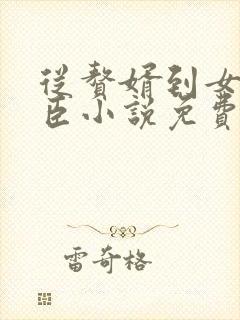 從贅婿到女
臣小說免費
雷奇格